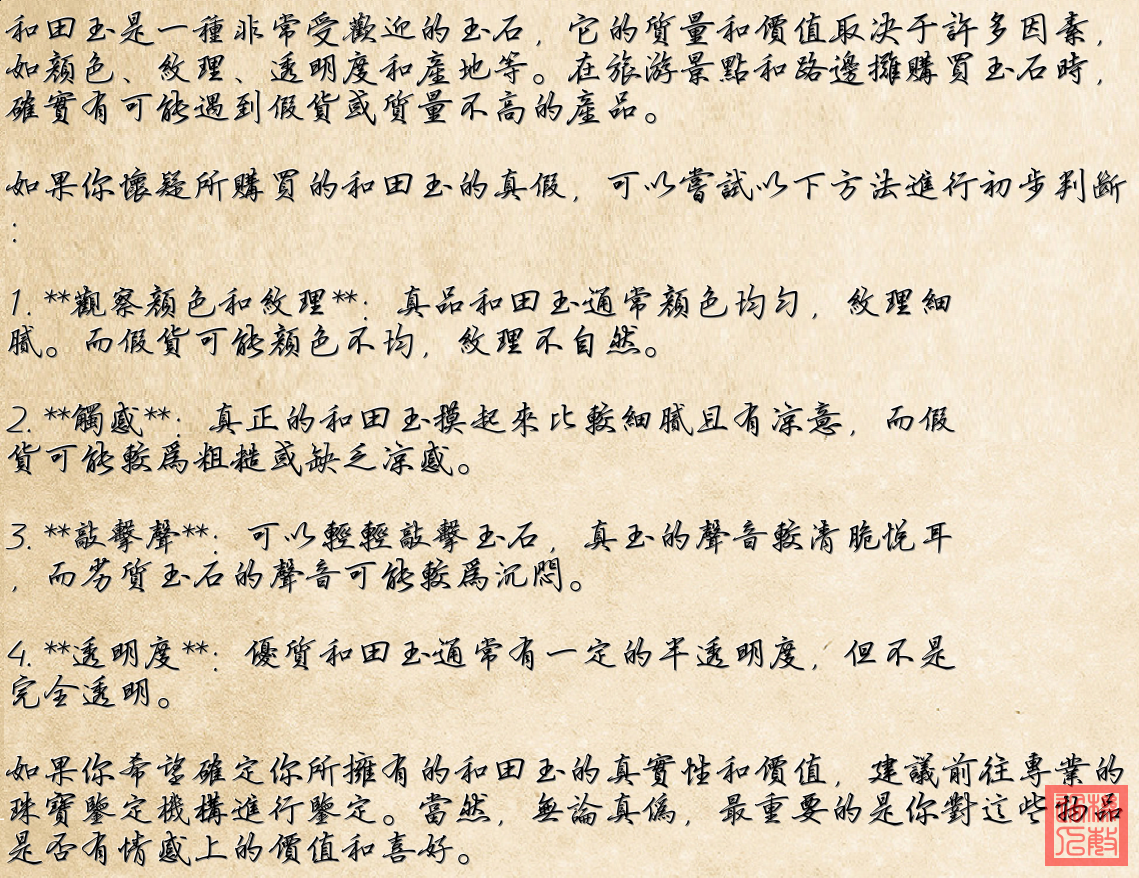 和田玉是一種非常受歡迎的玉石，它的質量和價值取决于許多因素，
如顔色、紋理、透明度和産地等。在旅游景點和路邊攤購買玉石時，
確實有可能遇到假貨或質量不高的産品。
如果你懷疑所購買的和田玉的真假，可以嘗試以下方法進行初步判斷
：
1. **觀察顔色和紋理**：真品和田玉通常顔色均匀，紋理細
膩。而假貨可能顔色不均，紋理不自然。
2. **觸感**：真正的和田玉摸起來比較細膩且有凉意，而假
貨可能較爲粗糙或缺乏凉感。
3. **敲擊聲**：可以輕輕敲擊玉石，真玉的聲音較清脆悦耳
，而劣質玉石的聲音可能較爲沉悶。
4. **透明度**：優質和田玉通常有一定的半透明度，但不是
完全透明。
如果你希望確定你所擁有的和田玉的真實性和價值，建議前往專業的
珠寶鑒定機構進行鑒定。當然，無論真僞，最重要的是你對這些物品
是否有情感上的價值和喜好。